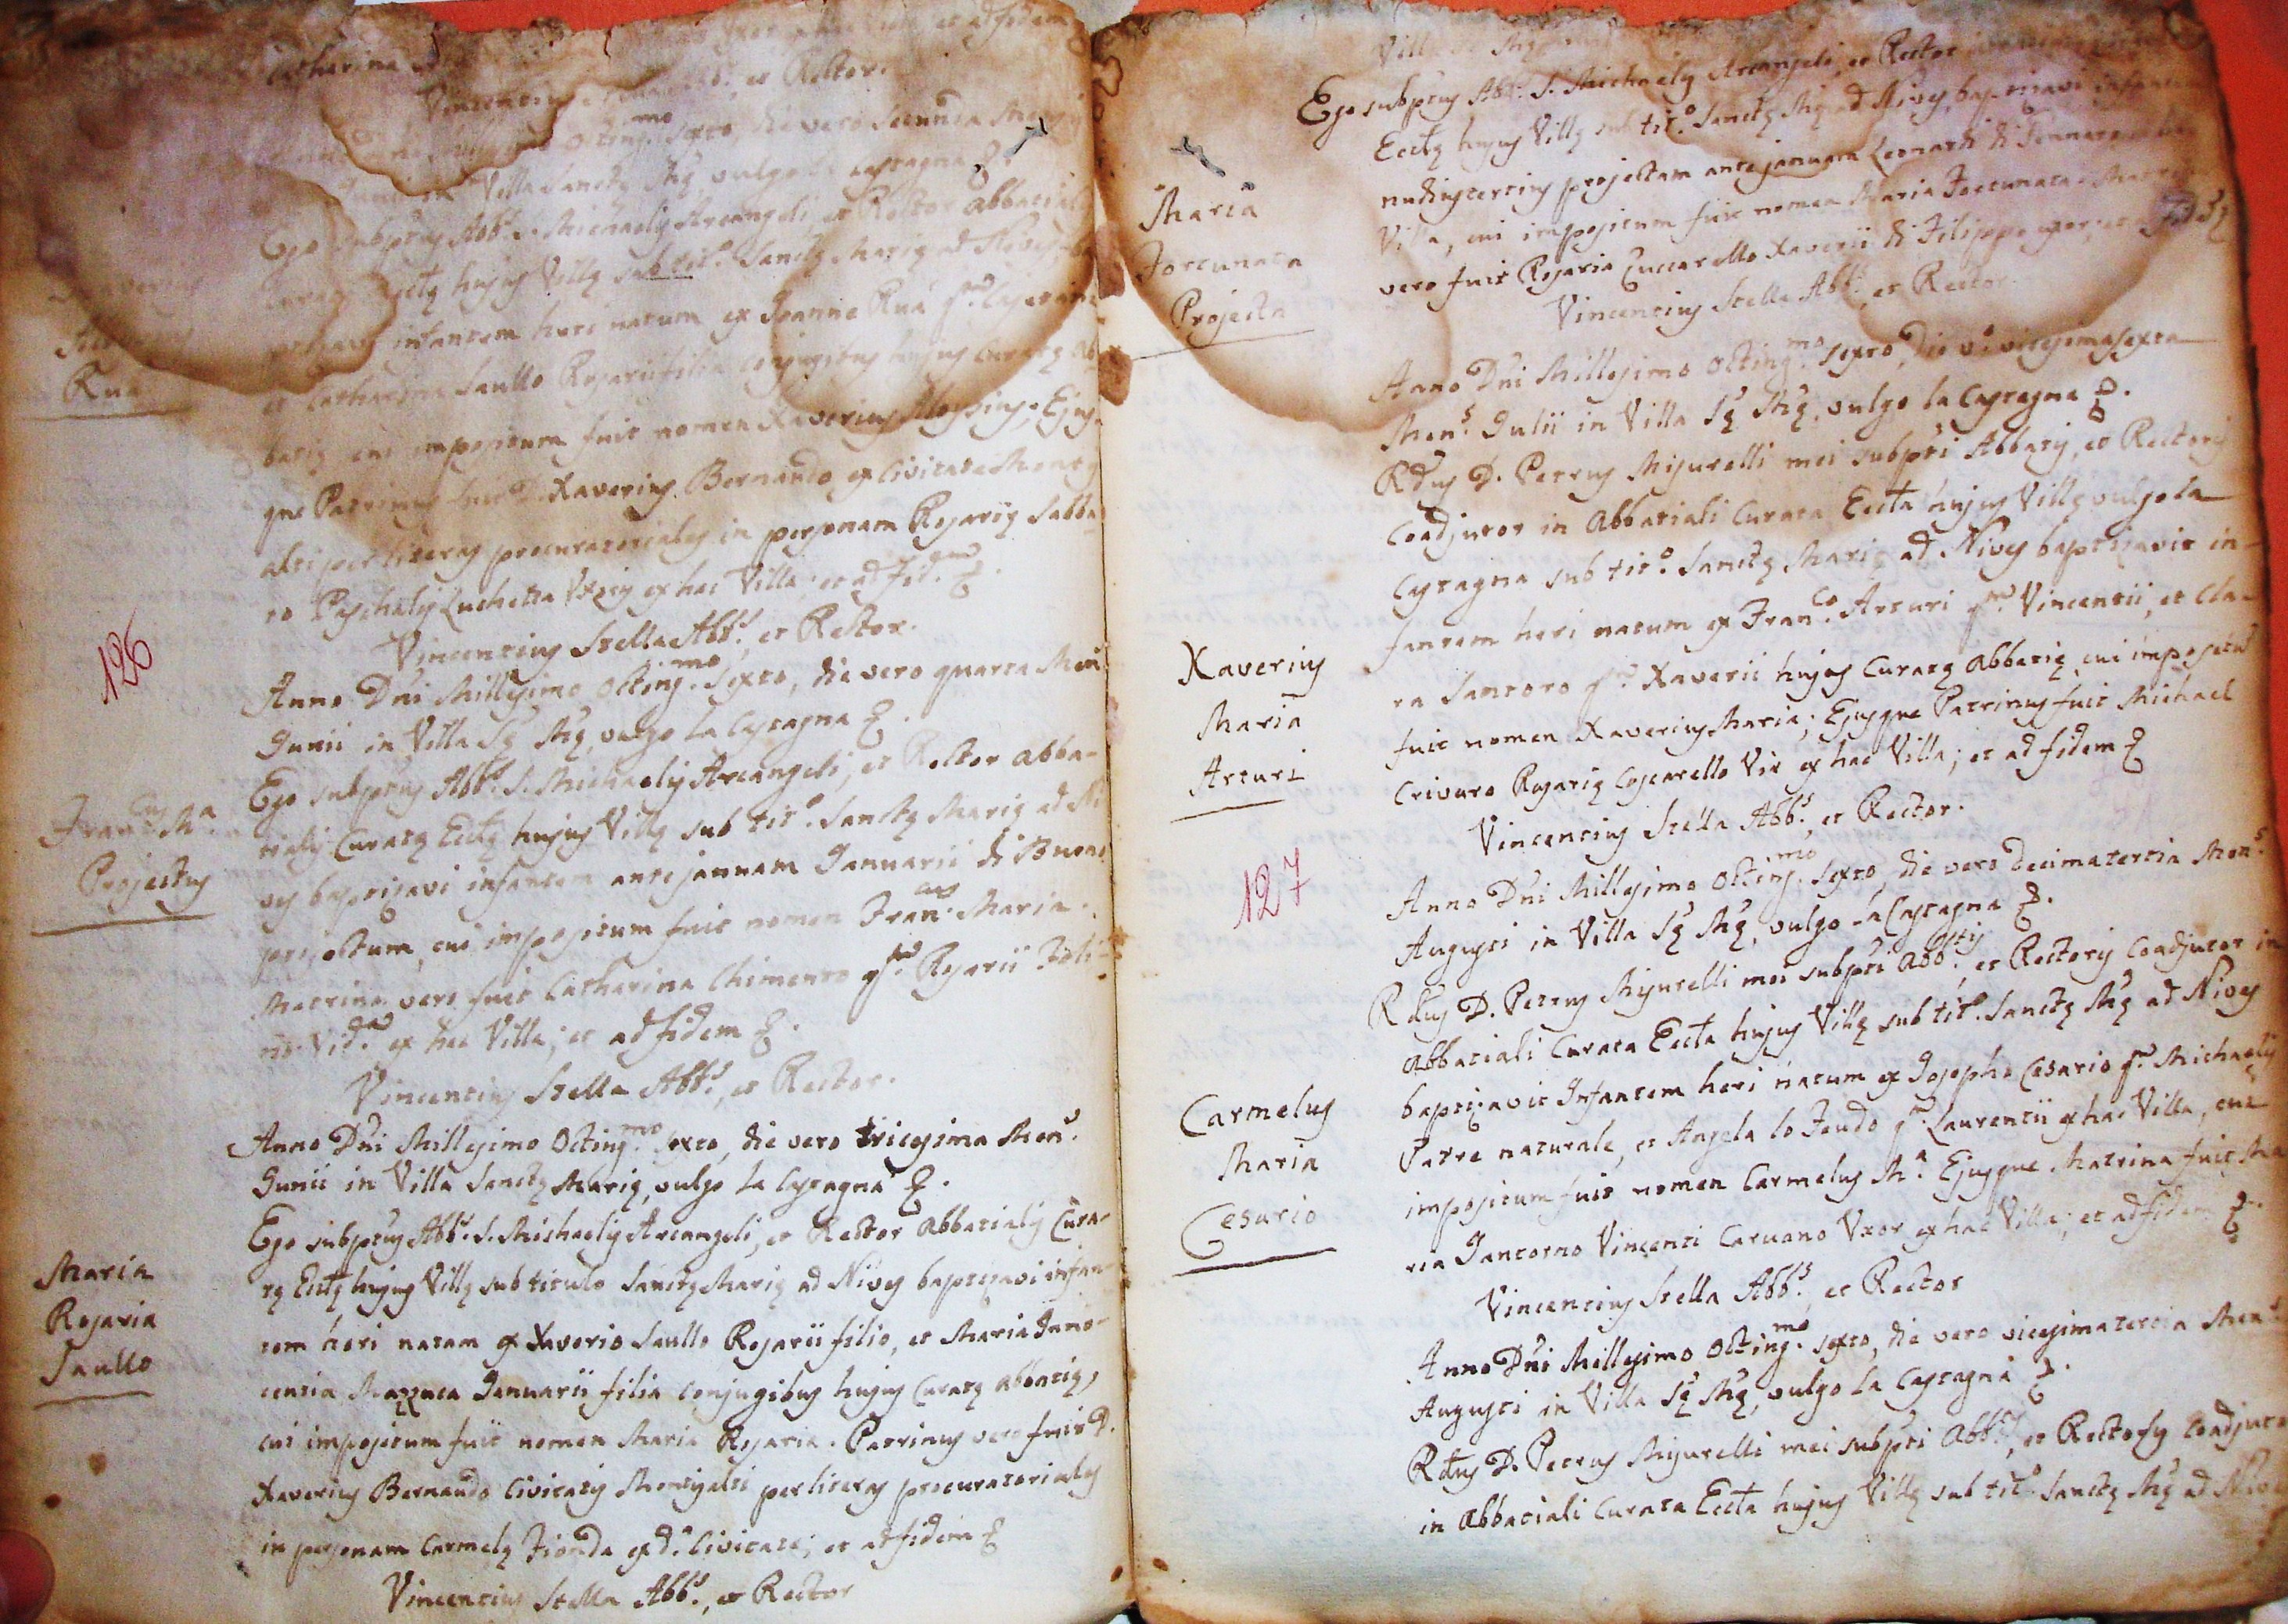 Catharina
et ad fidem
Vincentius et Rector.
Octing.mo sexto die vero secunda Mensis
Villa Sanctę Mę, vulgo la Castagna &.
Ego subptus Abb.s S. Michaelis Arcangeli, et Rector Abbatial
Curatę Ecctę hujus Villę sub tit.o Sanctę Marię ad Nives
infantem heri natum ex Joanne Ruà q.m
et Catharina Saullo Rosarii filia conjugibus hujus Curatę Ab
batię cui impositum fuit nomen Xaverius Aloysius; Ejus-
que Patrinus fuit D. Xaverius Bernaudo ex Civitate Montis
alti per literas procuratoriales in personam Rosarię Sabba
to Paschalis Luchetta Uxoris ex hac Villa; et ad fid.em &.
Vincentius Stella Abb.s, et Rector.
Xaverius
Aloysius
Ruà
126
Anno Dni Millesimo Octing.mo Sexto, die vero quarta Men.s
Junii in Villa Sę Mę, vulgo la Castagna &.
Ego subptus Abb.s S. Michaelis Arcangeli, et Rector Abba-
tialis Curatę Ecctę hujus Villę sub tit.o Sanctę Marię ad Ni
ves baptizavi infantem ante januam Januarii di Buono
projectum, cui impositum fuit nomen Fran.cus Maria.
Matrina vero fuit Catharina Chimento q.m Rosarii Foli-
no Vid.a ex hac Villa; et ad fidem &.
Vincentius Stella Abb.s, et Rector.
Fran.cus M.a
Projectus
Anno Dni Millesimo Octing.mo sexto, die vero tricesima Men.s
Junii in Villa Sanctę Marię, vulgo la Castagna &.
Ego subptus Abb.s S. Michaelis Arcangeli, et Rector Abbatialis Cura-
tę Ecctę hujus Villę sub titulo Sanctę Marię ad Nives baptizavi infan-
tem heri natam ex Xaverio Saullo Rosarii filio, et Maria Inno-
centia Mazzuca Januarii filia conjugibus hujus Curatę Abbatię,
cui impositum fuit nomen Maria Rosaria. Patrinus vero fuit D.
Xaverius Bernaudo Civitatis Montisalti per literas procuratoriales
in personam Carmelę Fionda ex d.a Civitate; et ad fidem &
Vincentius Stella Abb.s, et Rector
Maria
Rosaria
Saullo
Ego subptus Abb.s S. Michaelis Arcangeli, et Rector
Ecctę hujus Villę sub tit.o Sanctę Mę ad Nives, baptizavi infan
nudiustertius projectam ante januam Leonardi di Jennaro
Villa, cui impositum fuit nomen Maria Fortunata. Matri
vero fuit Rosaria Cuccarello Xaverii di Filippo uxor; et
Vincentius Stella Abb.s, et Rector.
Maria
Fortunata
Projecta
Anno Dni Millesimo Octing.mo sexto, die v.o vicesimasexta
Men.s Julii in Villa Sę Mę, vulgo la Castagna &.
Rdus D. Petrus Misurelli mei subpti Abbatis, et Rectoris
Coadjutor in Abbatiali Curata Eccta hujus Villę vulgo la
Castagna sub tit.o Sanctę Marię ad Nives baptizavit in-
fantem heri natum ex Fran.co Arturi q.m Vincentii, et Cla-
ra Santoro q.m Xaverii hujus Curatę Abbatię, cui impositu
fuit nomen Xaverius Maria; Ejusque Patrinus fuit Michael
Crivaro Rosarię Coscarello Vir ex hac Villa; et ad fidem &
Vincentius Stella Abb.s, et Rector.
Xaverius
Maria
Arturi
127
Anno Dni Millesimo Octing.mo sexto, die vero decimatertia Men.s
Augusti in Villa Sę Mę, vulgo la Castagna &.
Rdus D. Petrus Misurelli mei subpti Abb.tis, et Rectoris Coadjutor in
Abbatiali Curata Eccta hujus Villę sub tit.o Sanctę Mę ad Nives
baptizavit Infantem heri natum ex Josepho Cesario q.m Michaelis
Patre naturale, et Angela lo Feudo q.m Laurentii ex hac Villa, cui
impositum fuit nomen Carmelus M.a Ejusque Matrina fuit Ma
ria Santorno Vincenti Caruano Uxor ex hac Villa; et ad fidem &.
Vincentius Stella Abb.s, et Rector
Carmelus
Maria
Cesario
Anno Dni Millesimo Octing.mo sexto, die vero vicesimatertia Men.s
Augusti in Villa Sę Mę, vulgo la Castagna &.
Rdus D. Petrus Misurelli mei subpti Abb.tis, et Rectoris Coadjuto
in Abbatiali Curata Eccta hujus Villę sub tit.o Sanctę Mę ad Nive